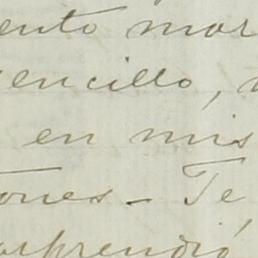 ento mor
encillo,
en mis
ones - Te
orprendió